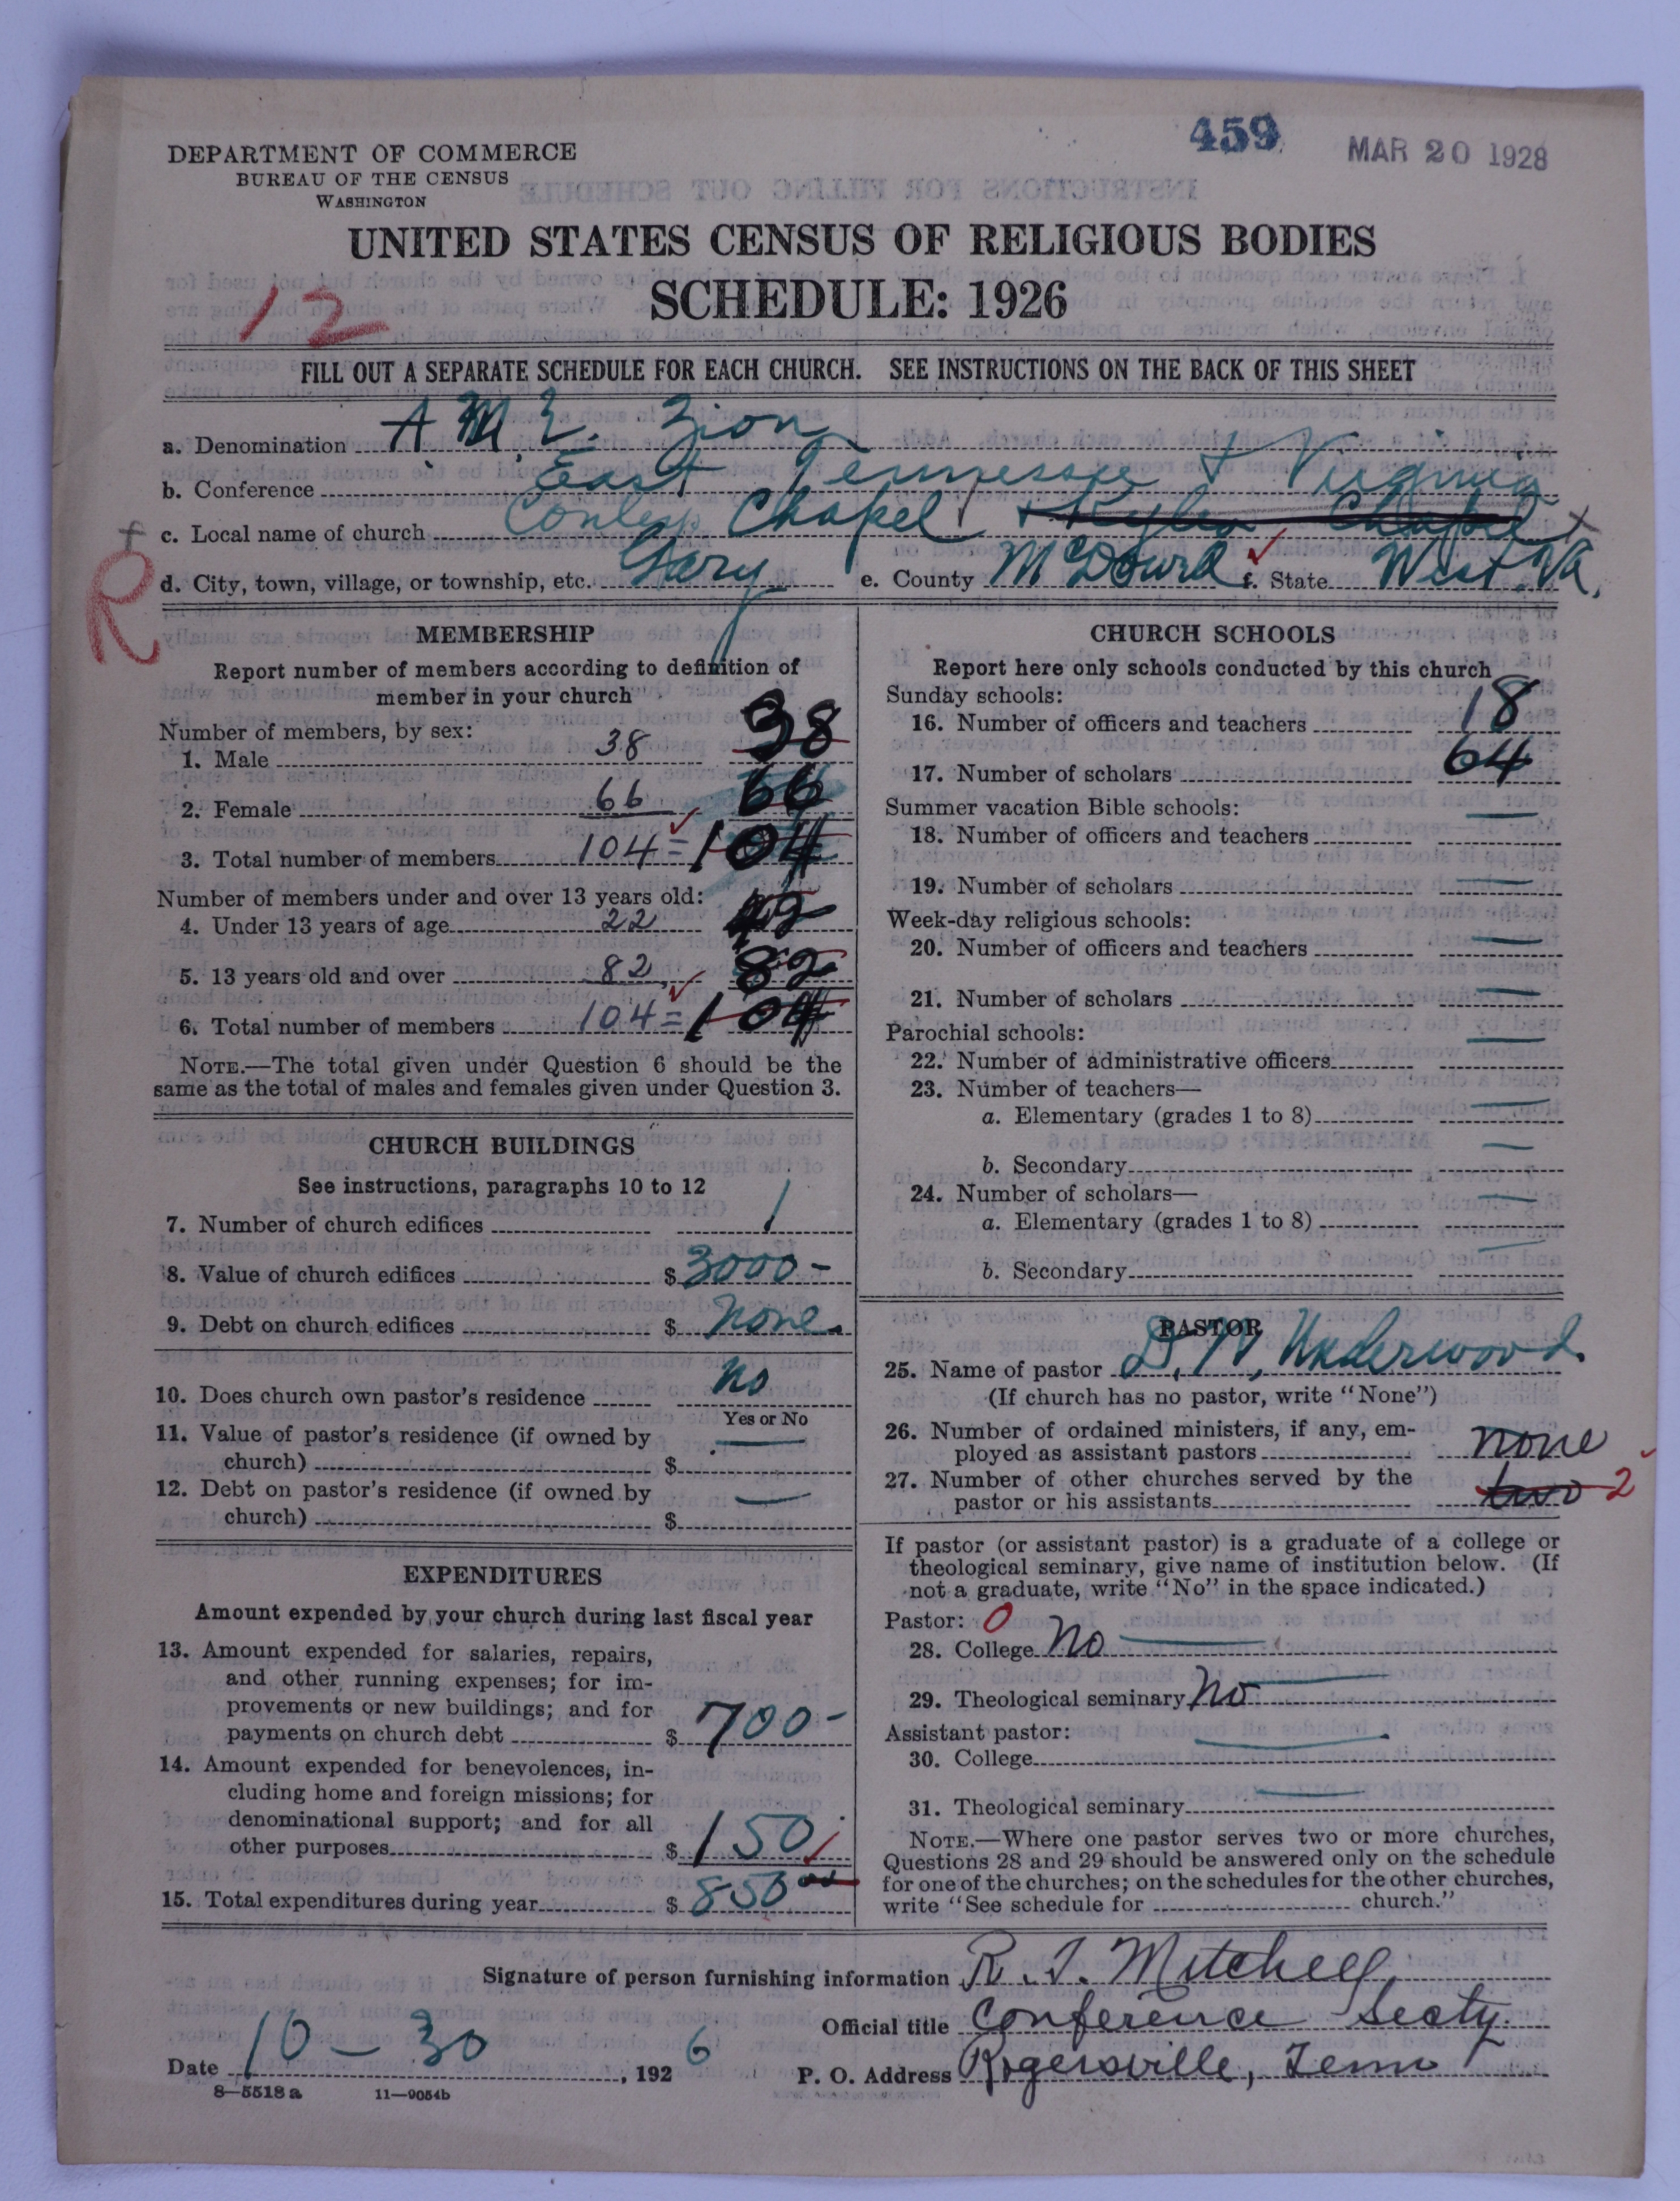 459
MAR 20 1928
DEPARTMENT OF COMMERCE
BUREAU OF THE CENSUS
WASHINGTON
UNITED STATES CENSUS OF RELIGIOUS BODIES
SCHEDULE: 1926
12
FILL OUT A SEPARATE SCHEDULE FOR EACH CHURCH. SEE INSTRUCTIONS ON THE BACK OF THIS SHEET
a. Denomination A. M. E. Zion
b. Conference East Tennessee & Virginia
c. Local name of church Conley Chapel
R
d. City, town, village, or township, etc. Gary e. County McDowell f. State West. Va.
MEMBERSHIP
Report number of members according to definition of
member in your church
Number of members, by sex:
1. Male 38 38
2. Female 66 66
3. Total number of members 104 = 104
Number of members under and over 13 years old:
4. Under 13 years of age 22
5. 13 years old and over 82 82
6. Total number of members 104 = 104
NOTE.—The total given under Question 6 should be the
same as the total of males and females given under Question 3.
CHURCH BUILDINGS
See instructions, paragraphs 10 to 12
7. Number of church edifices 1
8. Value of church edifices $ 3000-
9. Debt on church edifices $ None.
10. Does church own pastor's residence No
Yes or No
11. Value of pastor's residence (if owned by
church) $
12. Debt on pastor's residence (if owned by
church) $
EXPENDITURES
Amount expended by your church during last fiscal year
13. Amount expended for salaries, repairs,
and other running expenses; for im-
provements or new buildings; and for
payments on church debt $ 700-
14. Amount expended for benevolences, in-
cluding home and foreign missions; for
denominational support; and for all
other purposes $ 150
15. Total expenditures during year $ 850 00
CHURCH SCHOOLS
Report here only schools conducted by this church
Sunday schools:
16. Number of officers and teachers 18
17. Number of scholars 64
Summer vacation Bible schools:
18. Number of officers and teachers —
19. Number of scholars —
Week-day religious schools:
20. Number of officers and teachers —
21. Number of scholars —
Parochial schools:
22. Number of administrative officers —
23. Number of teachers—
a. Elementary (grades 1 to 8) —
b. Secondary —
24. Number of scholars—
a. Elementary (grades 1 to 8) —
b. Secondary —
PASTOR
25. Name of pastor Underwood.
(If church has no pastor, write "None")
26. Number of ordained ministers, if any, em-
ployed as assistant pastors none
27. Number of other churches served by the
pastor or his assistants two 2
If pastor (or assistant pastor) is a graduate of a college or
theological seminary, give name of institution below. (If
not a graduate, write "No" in the space indicated.)
Pastor: 0
28. College No
29. Theological seminary No
Assistant pastor:
30. College
31. Theological seminary
NOTE.—Where one pastor serves two or more churches,
Questions 28 and 29 should be answered only on the schedule
for one of the churches; on the schedules for the other churches,
write "See schedule for church."
Signature of person furnishing information R. T. Mitchell
Official title Conference Secty.
Date 10 - 30, 1926 P. O. Address Rogersville, Tenn
8—5518a 11—9054b